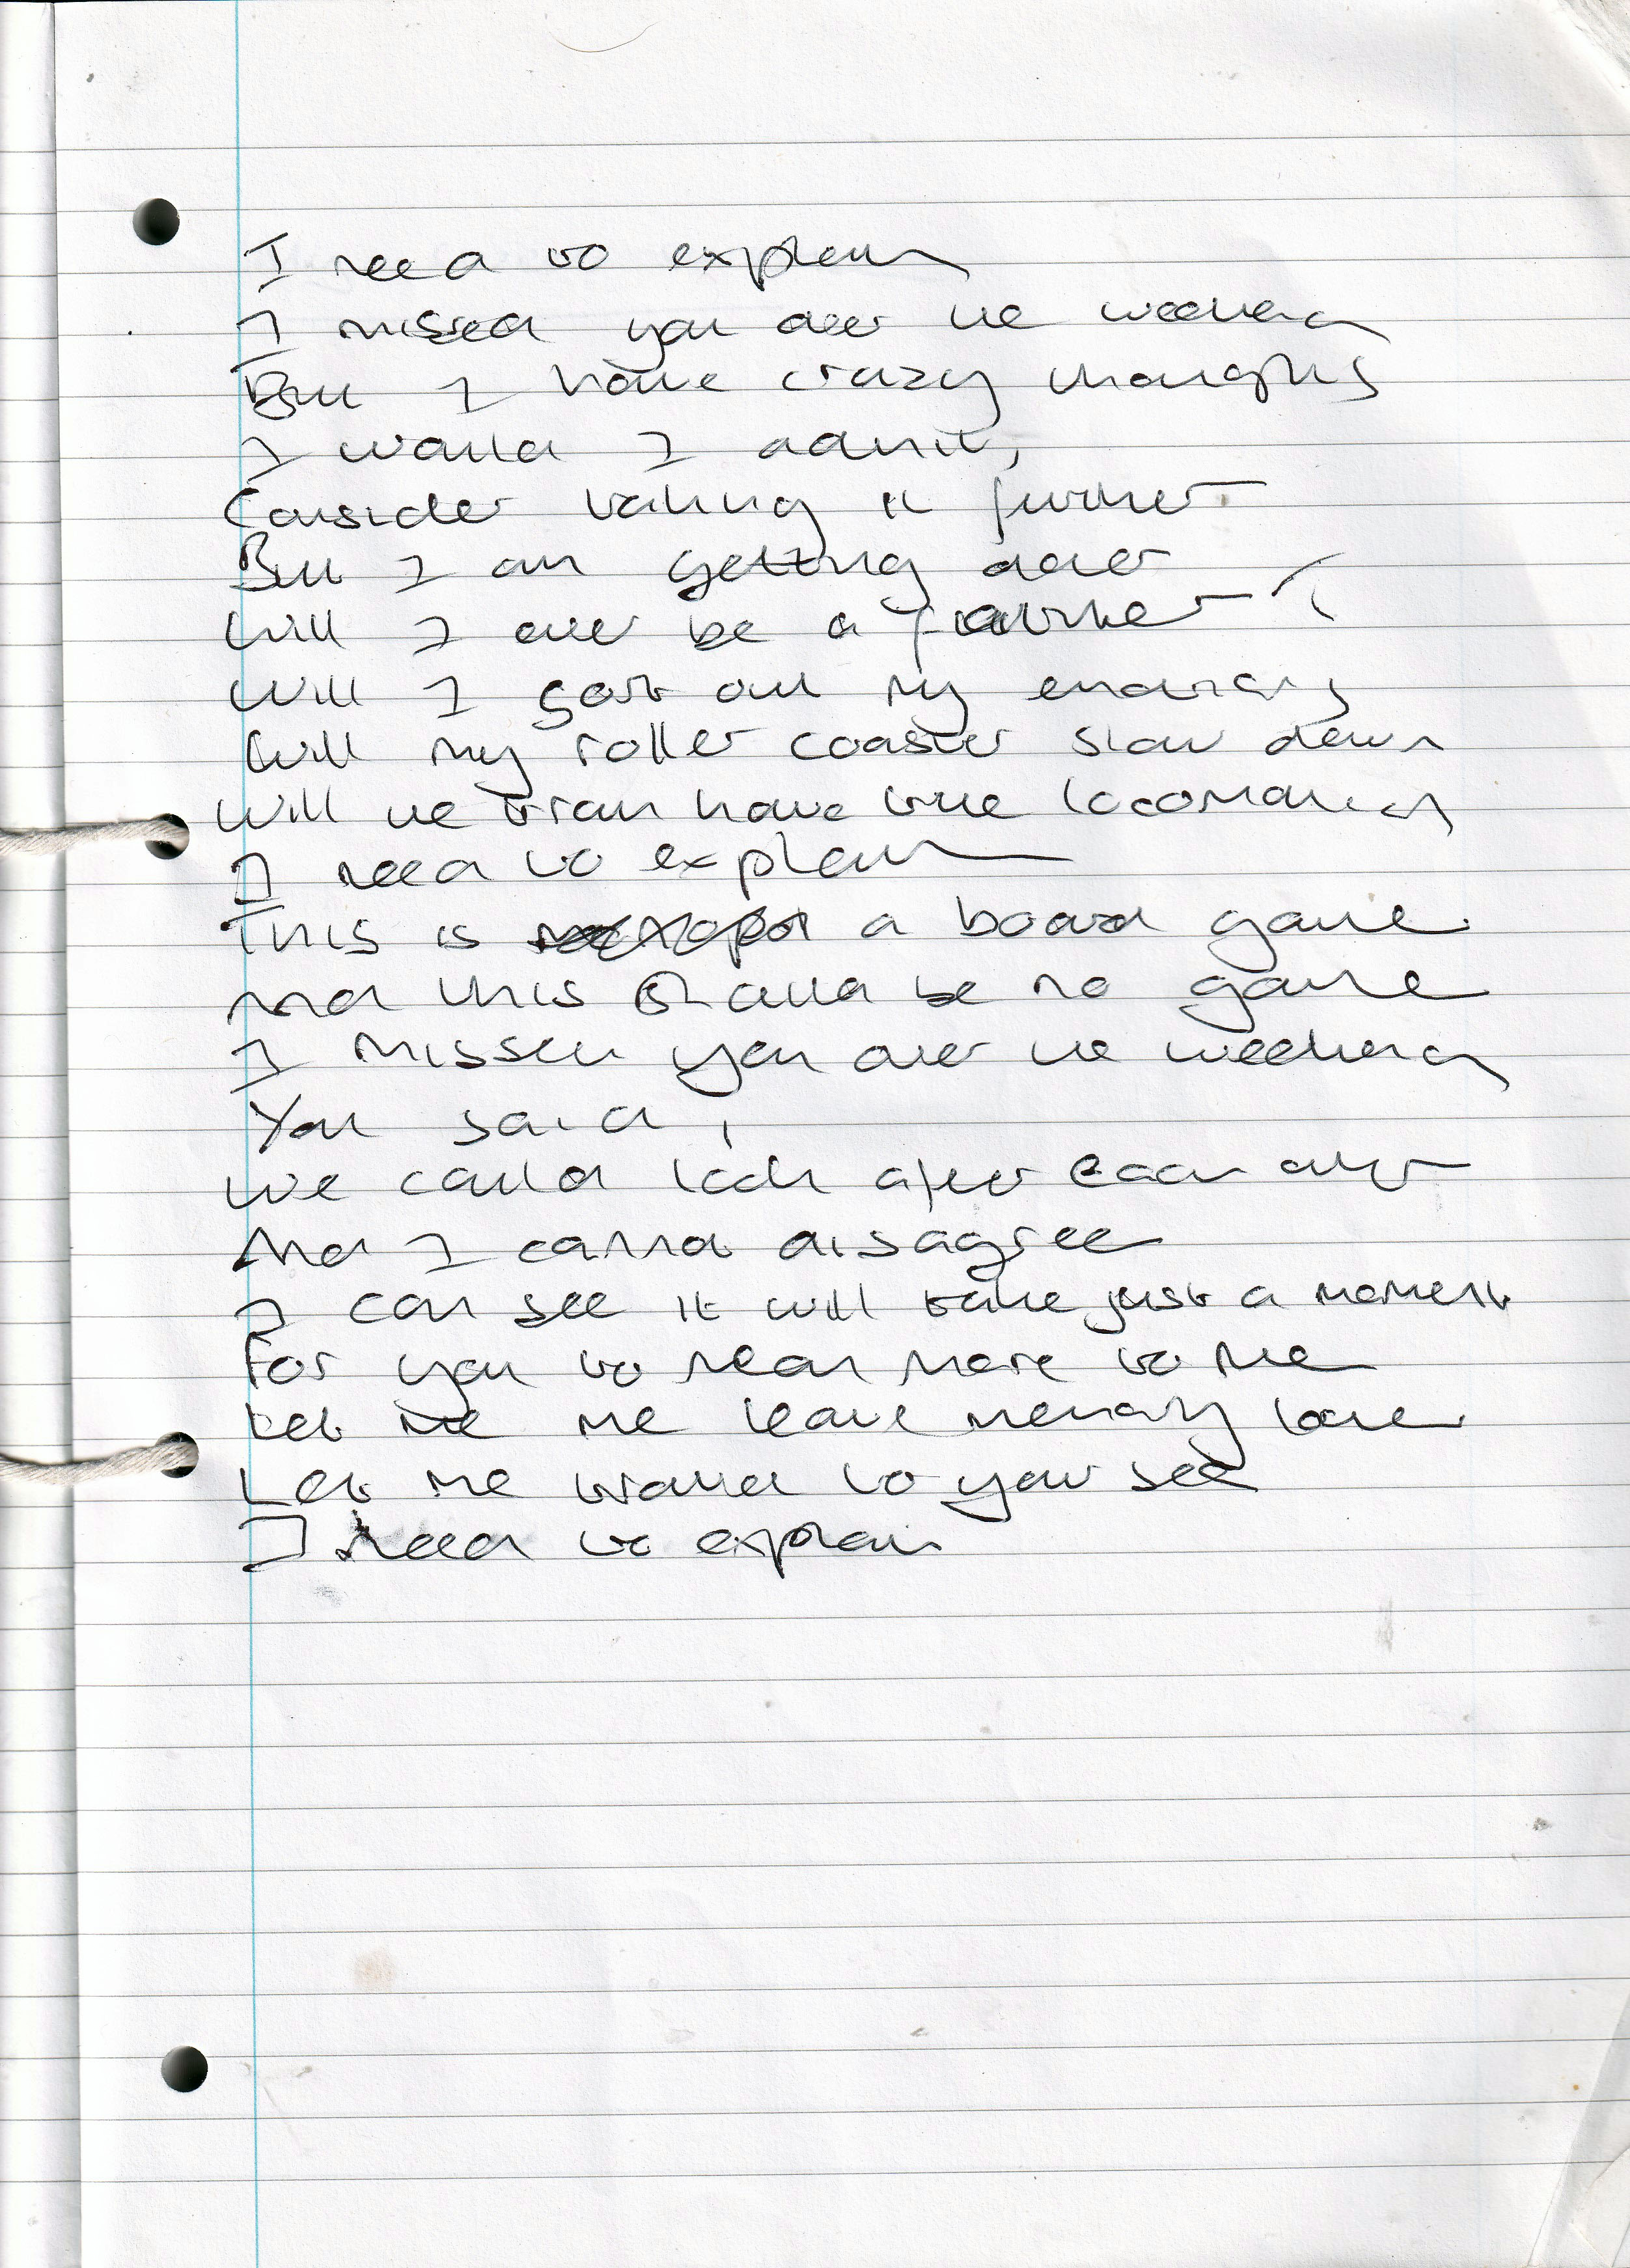 I need to explain
I missed you over the weekend
But I have crazy thoughts
I would I admit,
Consider taking it further
But I am getting older
Will I ever be a father?
Will I sort out my
Will my roller coaster slow down
Will the train have true
I need to explain
This is a board game
And this should be no game
I missed you over the weekend
You said,
We could look after each other
And I cannot disagree
I can see it will take just a moment
For you to mean more to me
Let me me leave memory lane
Let me to you see
I need to explain